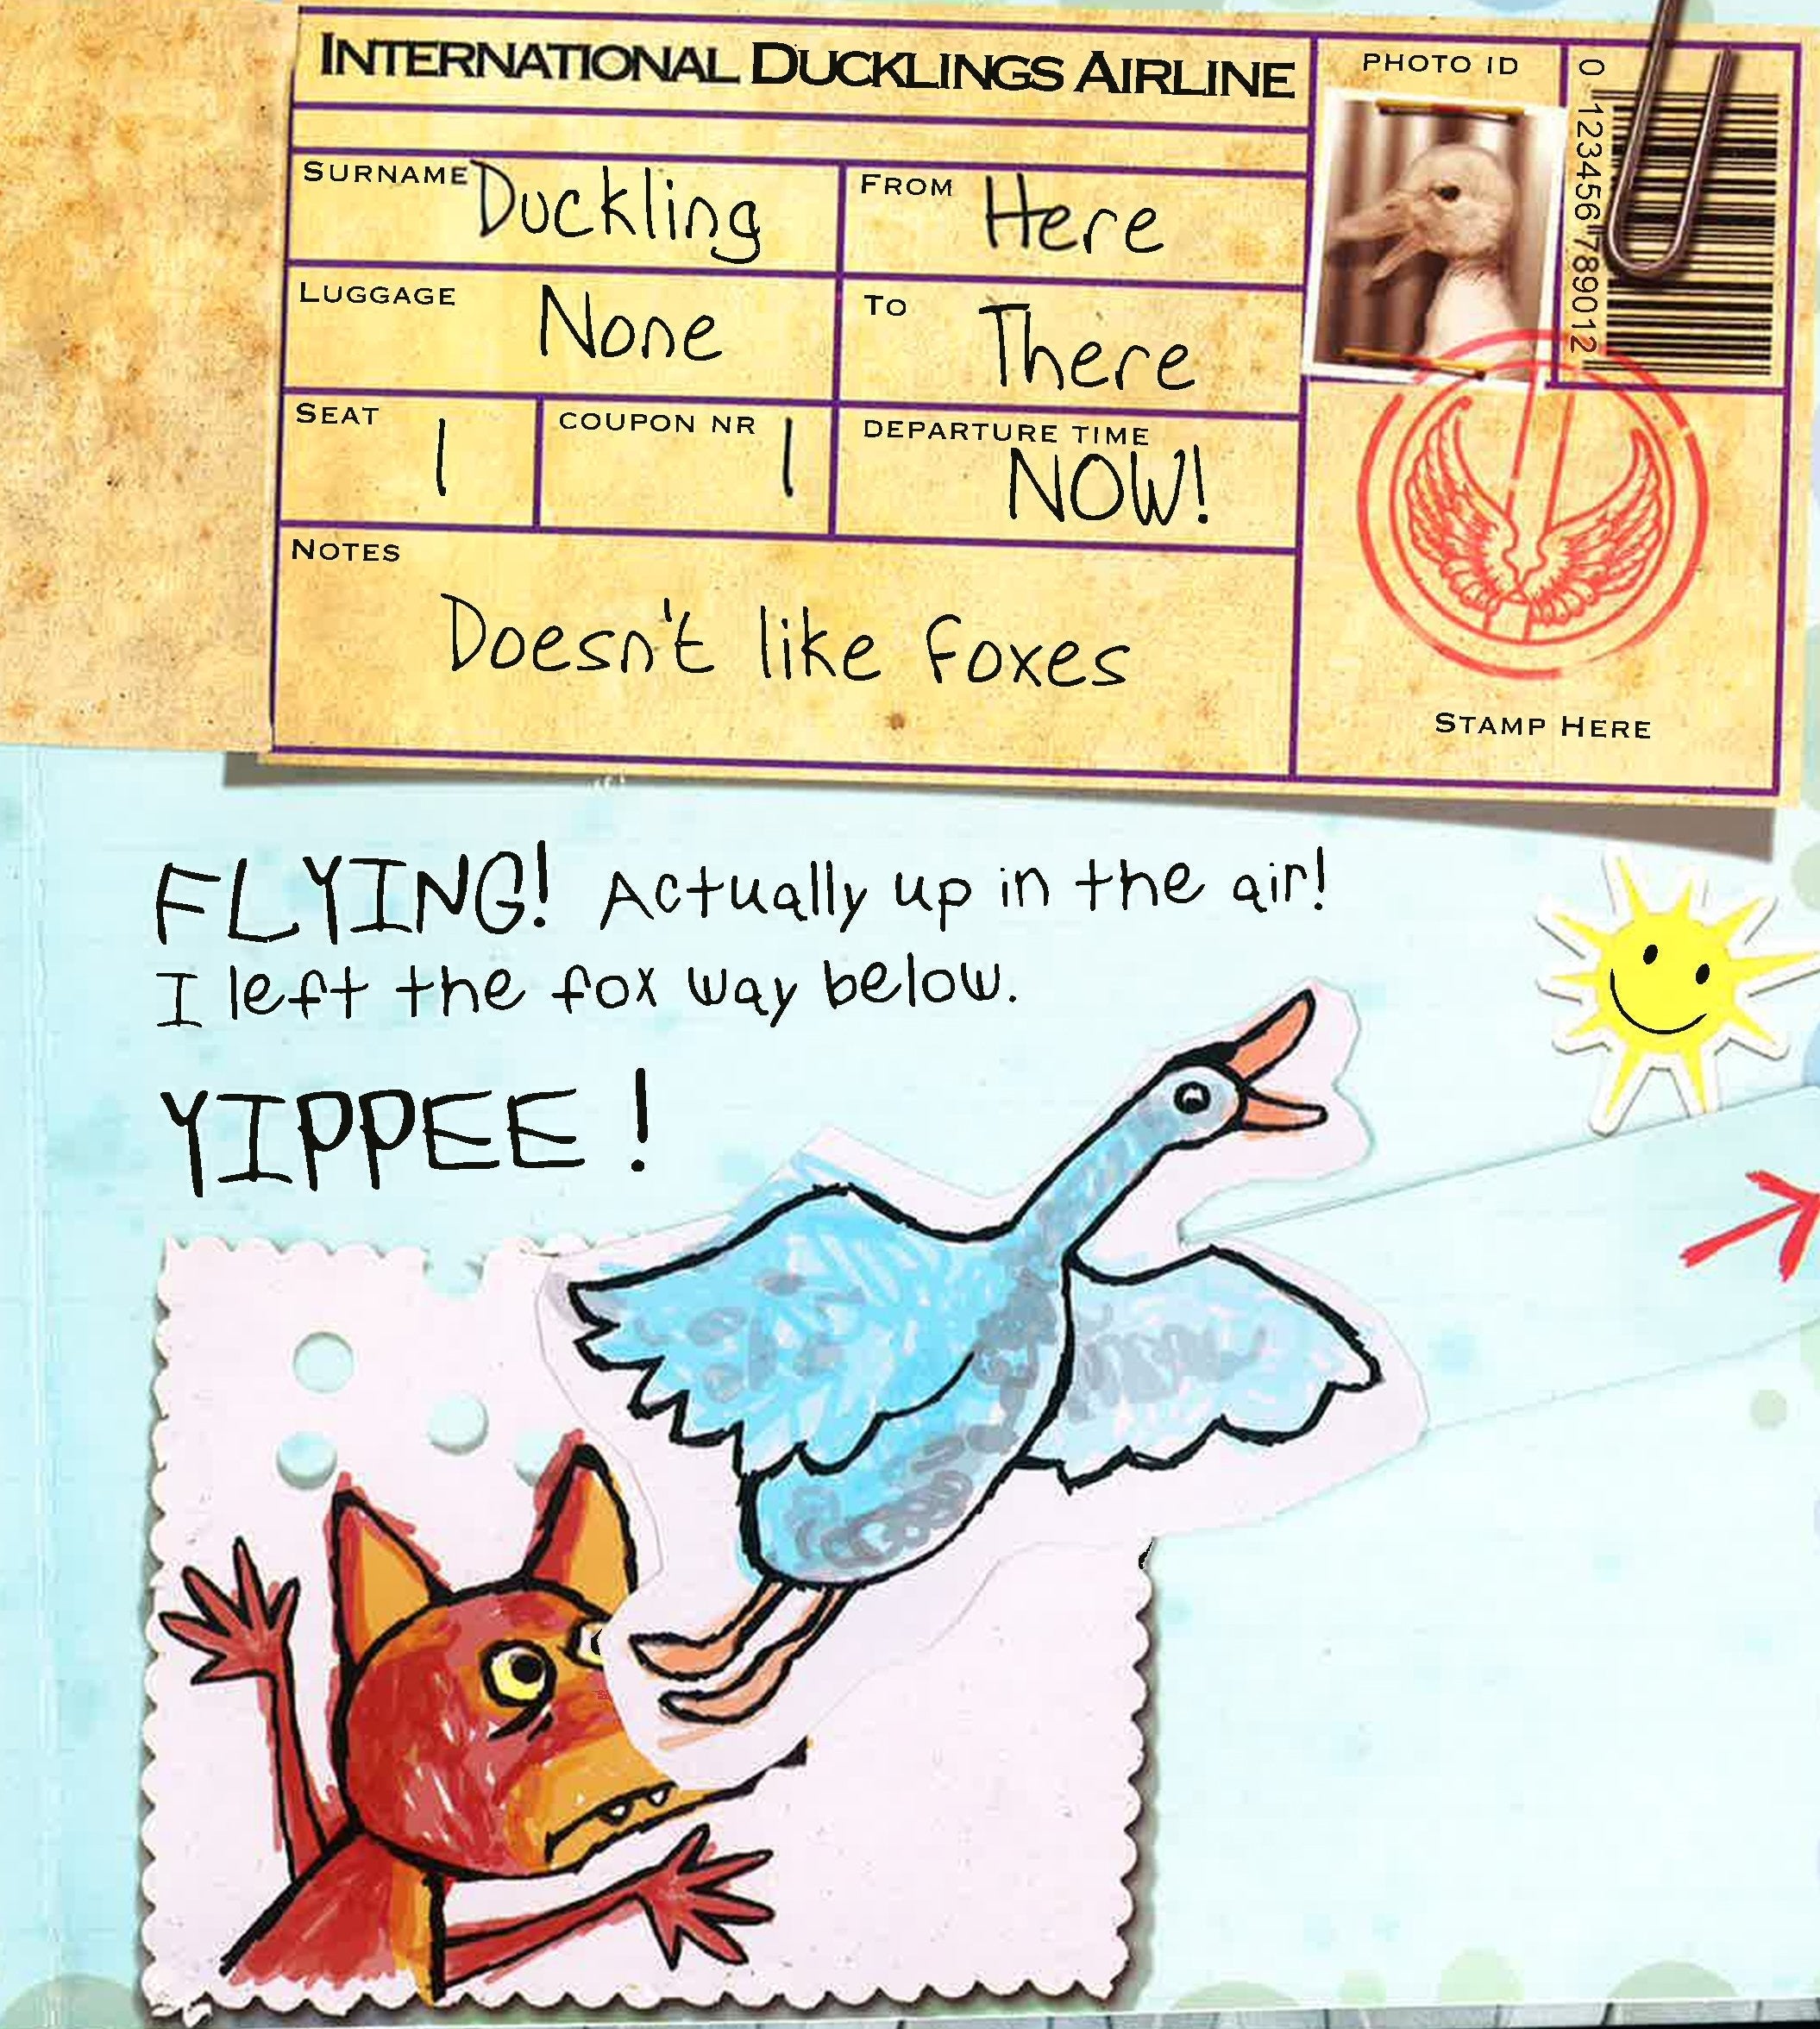 INTERNATIONAL DUCKLINGS AIRLINE
PHOTO ID
0 123456 789012
SURNAME Duckling
FROM Here
LUGGAGE None
TO There
SEAT 1
COUPON NR 1
DEPARTURE TIME NOW!
NOTES
Doesn't like foxes
STAMP HERE
FLYING! Actually up in the air!
I left the fox way below.
YIPPEE!